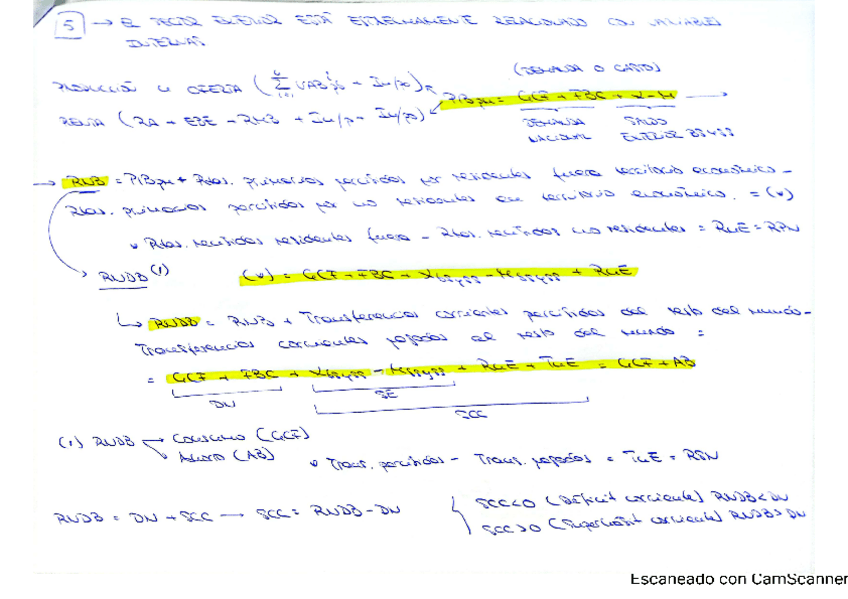 5 → EL SECTOR EXTERIOR ESTÁ ESTRECHAMENTE RELACIONADO CON VARIABLES
INTERNAS
(DEMANDA O GASTO)
PRODUCCIÓN U OFERTA (Σ VAB + Im/p)
PIBpm = GCF + FBC + X-M →
RENTA (RA + EBE + RMB + Im/p - Im/p)
DEMANDA NACIONAL
SALDO EXTERIOR BBySS
→ RNB = PIBpm + Rtas. primarias percibidas por residentes fuera territorio económico -
Rtas. primarias percibidas por no residentes en territorio económico. = (v)
v Rtas. recibidas residentes fuera - Rtas. recibidas no residentes = RnE = RPN
RNDB (1)
(v) = GCF + FBC + XBBySS - MBBySS + RnE
↳ RNDB = RNB + Transferencias corrientes percibidas del resto del mundo -
Transferencias corrientes pagadas al resto del mundo =
= GCF + FBC + XBBySS - MBBySS + RnE + TnE = GCF + AB
DN
SE
SCC
(1) RNDB → Consumo (GCF)
↘ Ahorro (AB)
v Trans. percibidas - Trans. pagadas = TnE = RSN
RNDB = DN + SCC → SCC = RNDB - DN
SCC<0 (Déficit corriente) RNDB<DN
SCC>0 (Superávit corriente) RNDB>DN
Escaneado con CamScanner